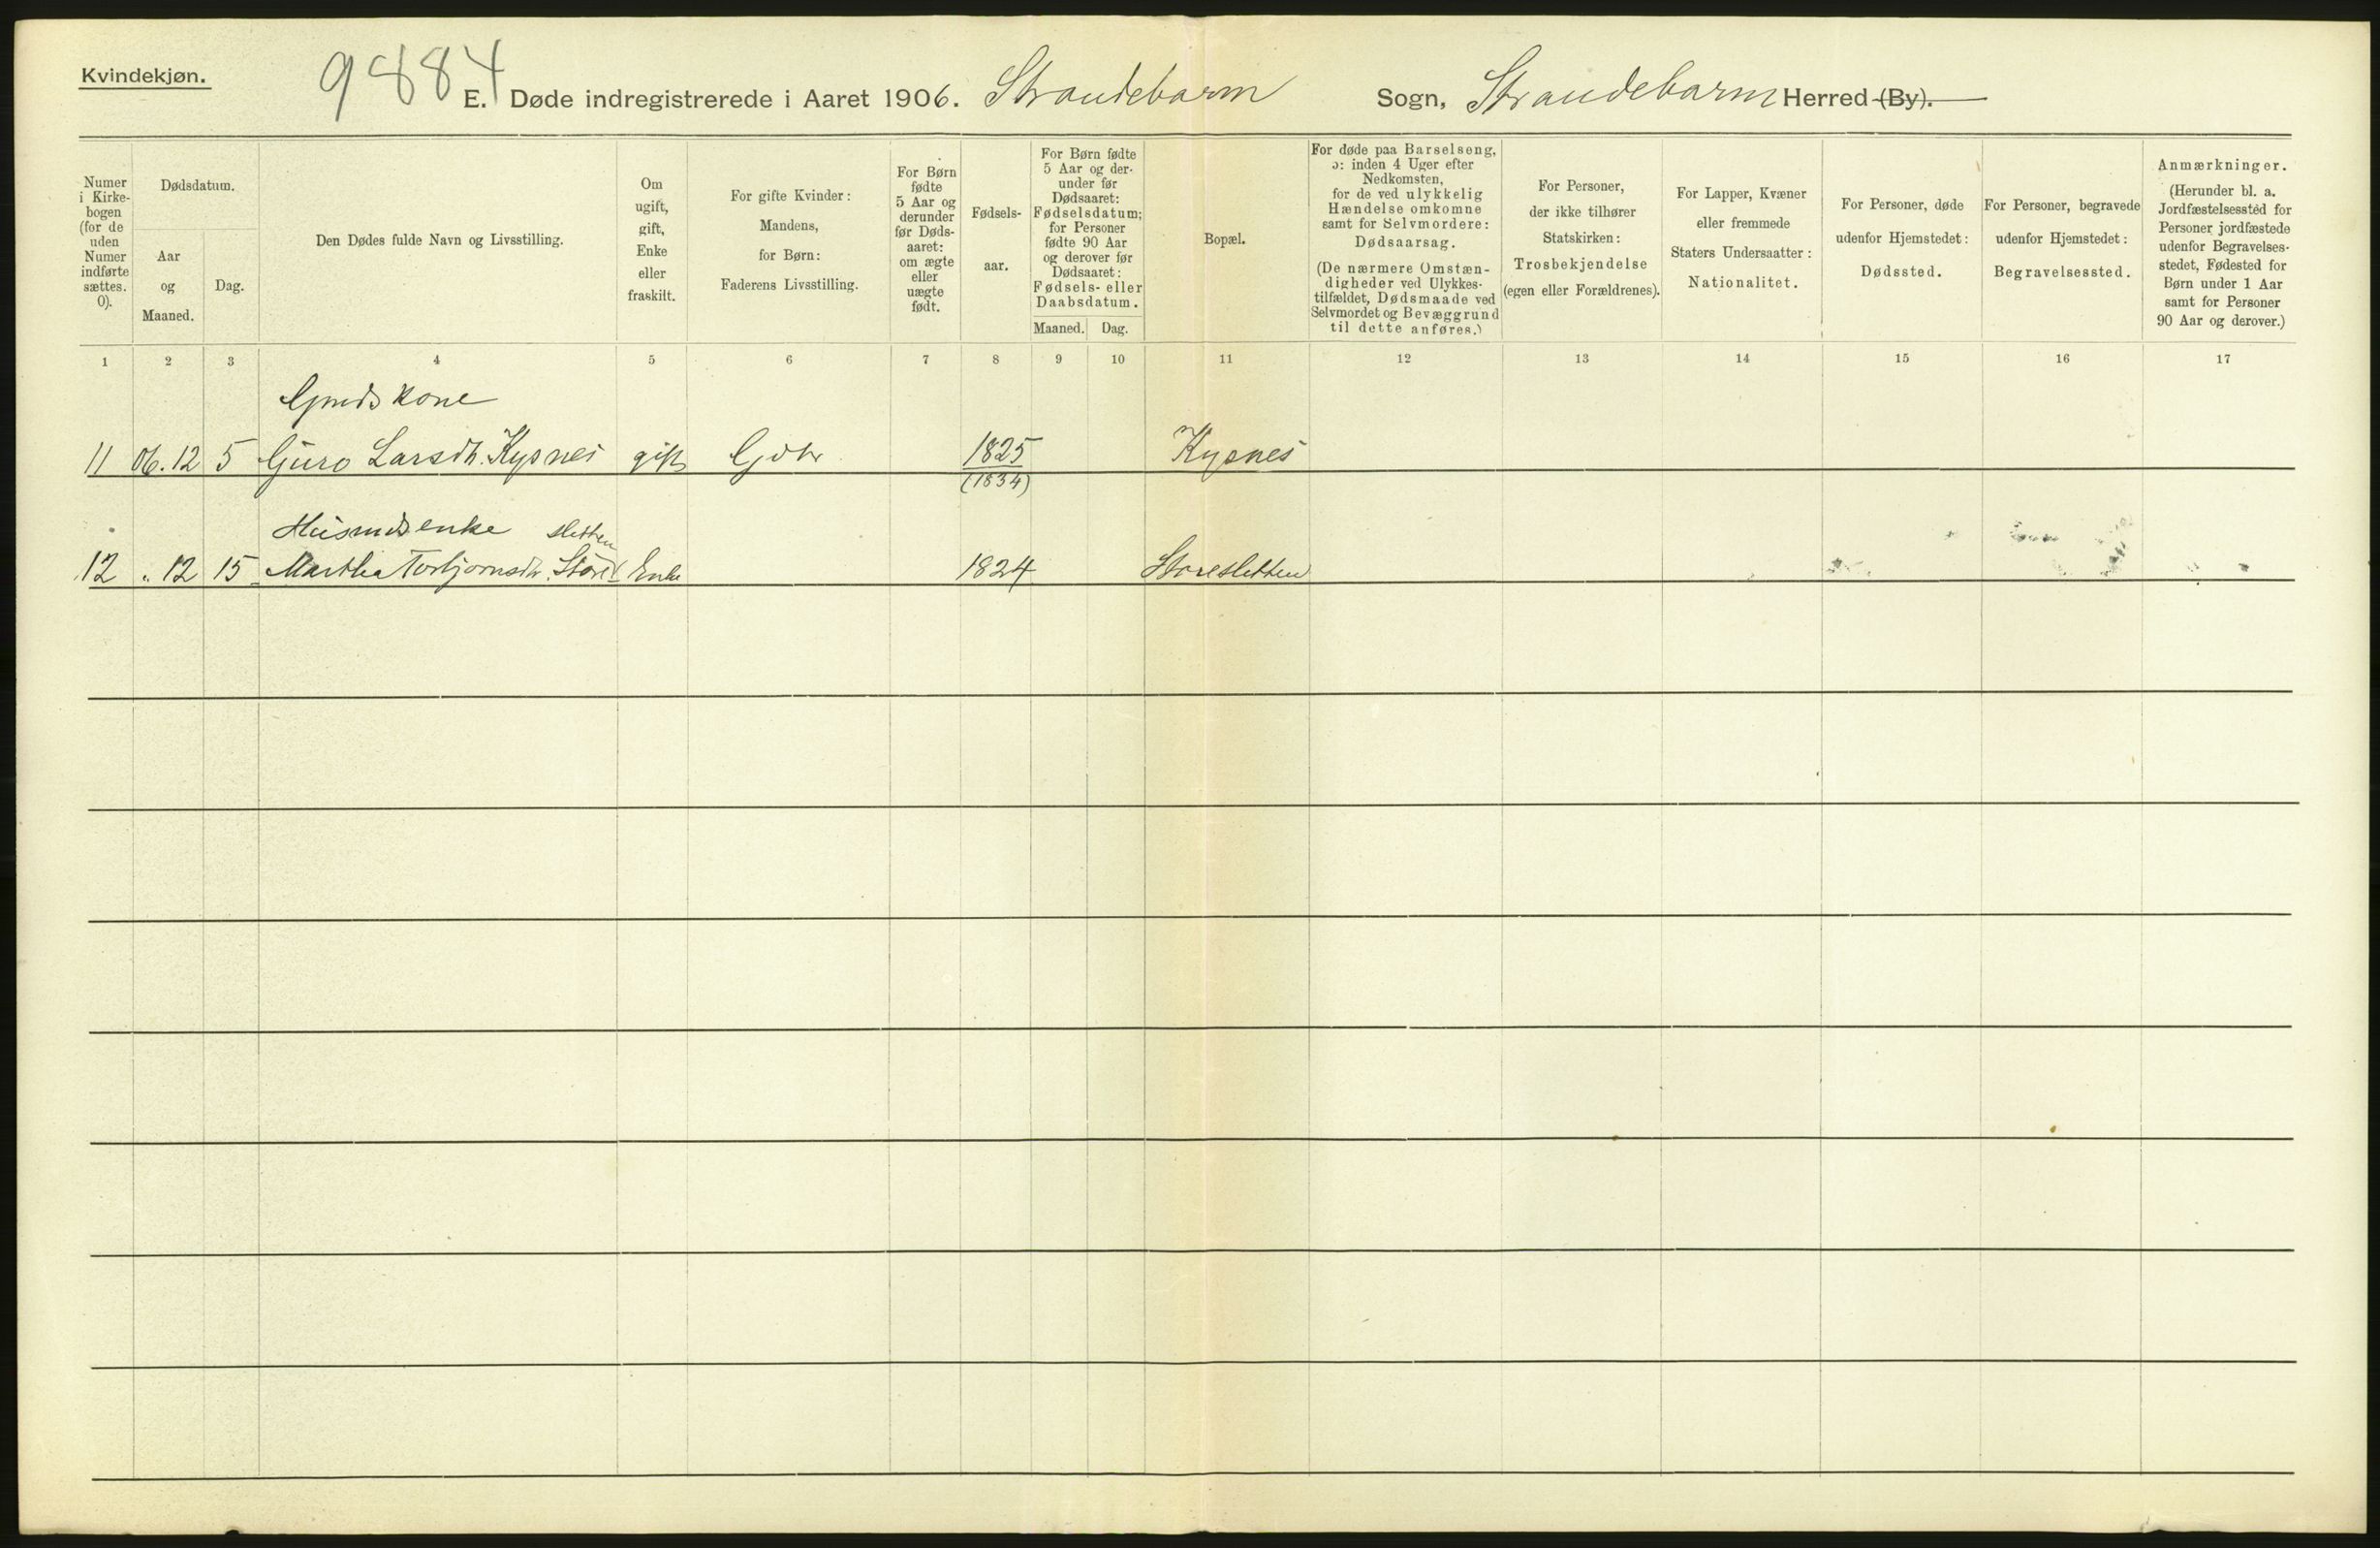 Kvindekjøn.
9884
E. Døde indregistrerede i Aaret 1906. Strandebarm Sogn, Strandebarm Herred (By).
Numer i Kirkebogen (for de uden Numer indførte sættes. 0).
Dødsdatum.
Aar og Maaned.
Dag.
Den Dødes fulde Navn og Livsstilling.
Om ugift, gift, Enke eller fraskilt.
For gifte Kvinder: Mandens, for Børn: Faderens Livsstilling.
For Børn fødte 5 Aar og derunder før Dødsaaret: om ægte eller uægte født.
Fødselsaar.
For Børn fødte 5 Aar og derunder før Dødsaaret: Fødselsdatum; for Personer fødte 90 Aar og derover før Dødsaaret: Fødsels- eller Daabsdatum.
Maaned. Dag.
Bopæl.
For døde paa Barselseng, ɔ: inden 4 Uger efter Nedkomsten, for de ved ulykkelig Hændelse omkomne samt for Selvmordere: Dødsaarsag. (De nærmere Omstændigheder ved Ulykkestilfældet, Dødsmaade ved Selvmordet og Bevæggrund til dette anføres.)
For Personer, der ikke tilhører Statskirken: Trosbekjendelse (egen eller Forældrenes).
For Lapper, Kvæner eller fremmede Staters Undersaatter: Nationalitet.
For Personer, døde udenfor Hjemstedet: Dødssted.
For Personer, begravede udenfor Hjemstedet: Begravelsessted.
Anmærkninger. (Herunder bl. a. Jordfæstelsessted for Personer jordfæstede udenfor Begravelsesstedet, Fødested for Børn under 1 Aar samt for Personer 90 Aar og derover.)
1 2 3 4 5 6 7 8 9 10 11 12 13 14 15 16 17
Gmdskone
11 06.12 5 Guro Larsdtr. Kysnes gift Gdbr 1825 Kysnes
(1834)
Husmdsenke sletten
12 „ 12 15 Martha Torbjørnsdtr. Store Enke 1824 Storesletten